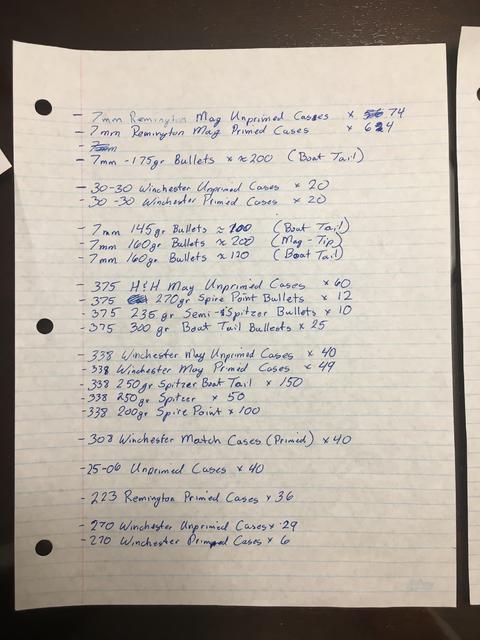 - 7mm Remington Mag Unprimed Cases × 74
- 7mm Remington Mag Primed Cases × 64
- 7mm
- 7mm - 175gr Bullets × ≈ 200 (Boat Tail)
- 30-30 Winchester Unprimed Cases × 20
- 30-30 Winchester Primed Cases × 20
- 7mm 145gr Bullets ≈ 100 (Boat Tail)
- 7mm 160gr Bullets ≈ 200 (Mag-Tip)
- 7mm 160gr Bullets ≈ 120 (Boat Tail)
- 375 H&H Mag Unprimed Cases × 60
- 375 270gr Spire Point Bullets × 12
- 375 235gr Semi-Spitzer Bullets × 10
- 375 300gr Boat Tail Bullets × 25
- 338 Winchester Mag Unprimed Cases × 40
- 338 Winchester Mag Primed Cases × 49
- 338 250gr Spitzer Boat Tail × 150
- 338 250gr Spitzer × 50
- 338 200gr Spire Point × 100
- 308 Winchester Match Cases (Primed) × 40
- 25-06 Unprimed Cases × 40
- 223 Remington Primed Cases × 36
- 270 Winchester Unprimed Cases × 29
- 270 Winchester Primed Cases × 6